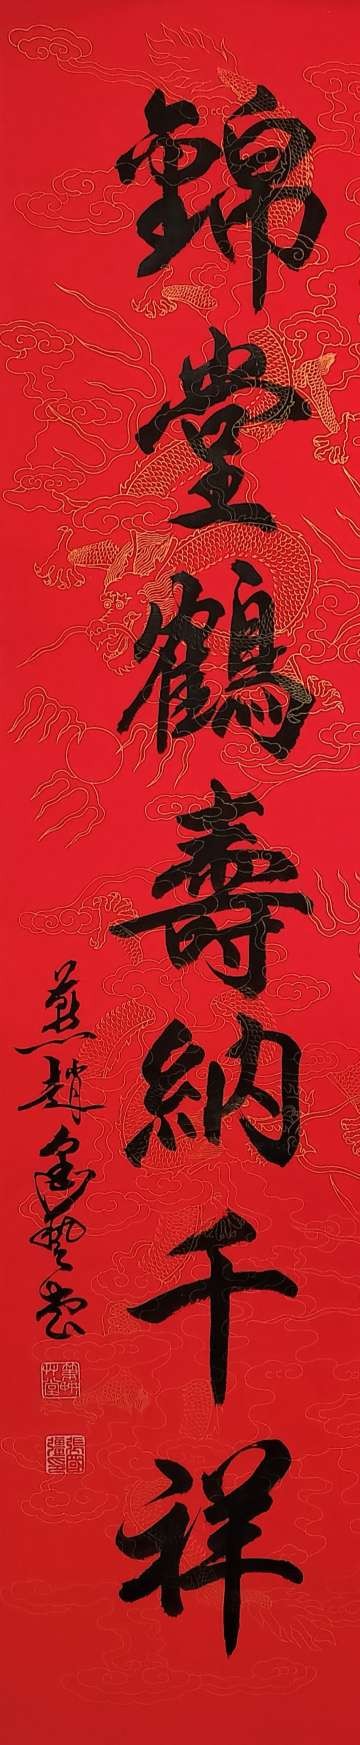 錦堂鶴壽納千祥
燕趙